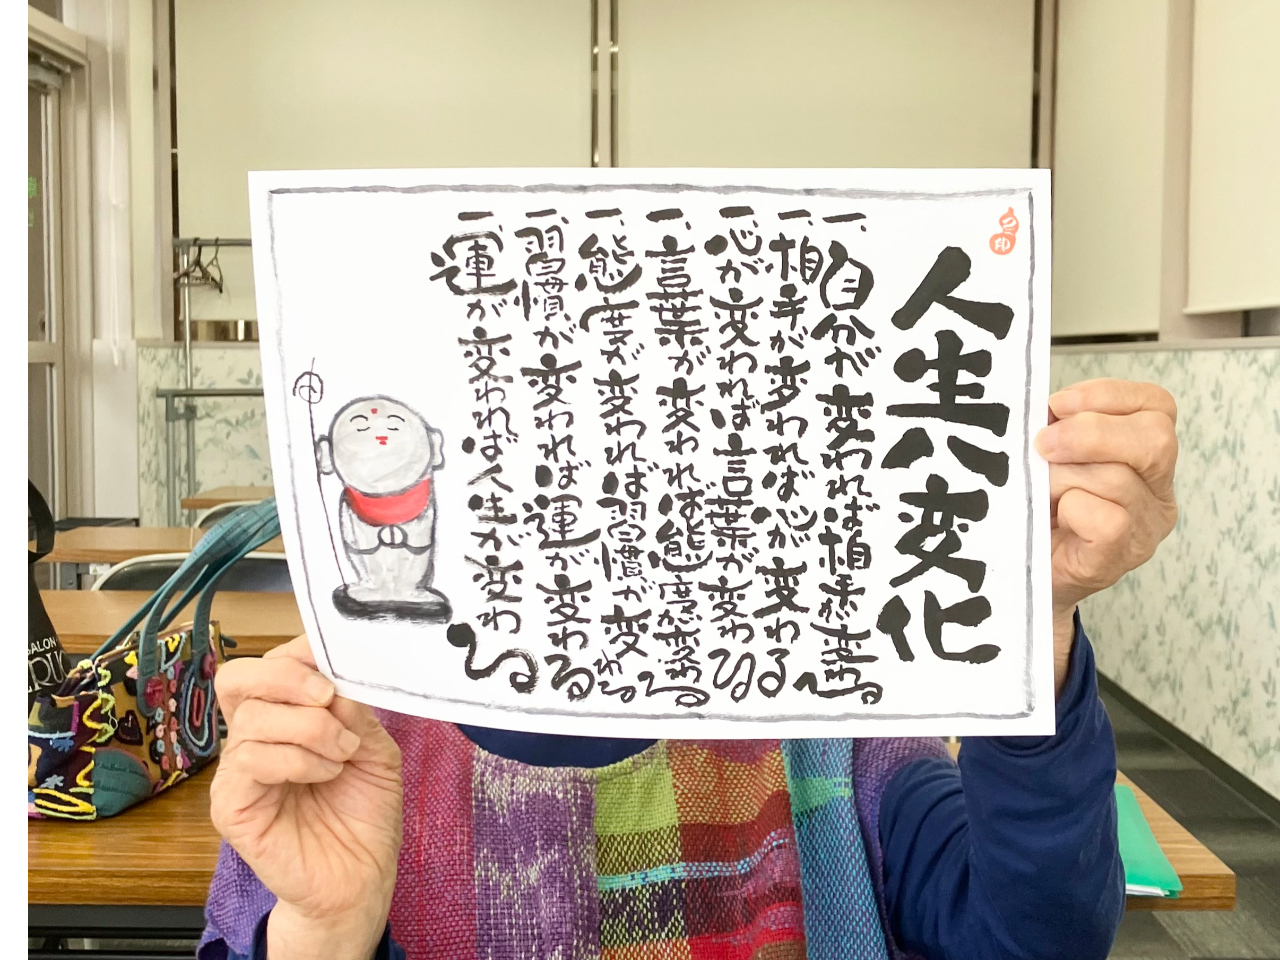 人生八変化
一、自分が変われば相手が変わる
一、相手が変われば心が変わる
一、心が変われば言葉が変わる
一、言葉が変われば態度が変わる
一、態度が変われば習慣が変わる
一、習慣が変われば運が変わる
一、運が変われば人生が変わる
SALON